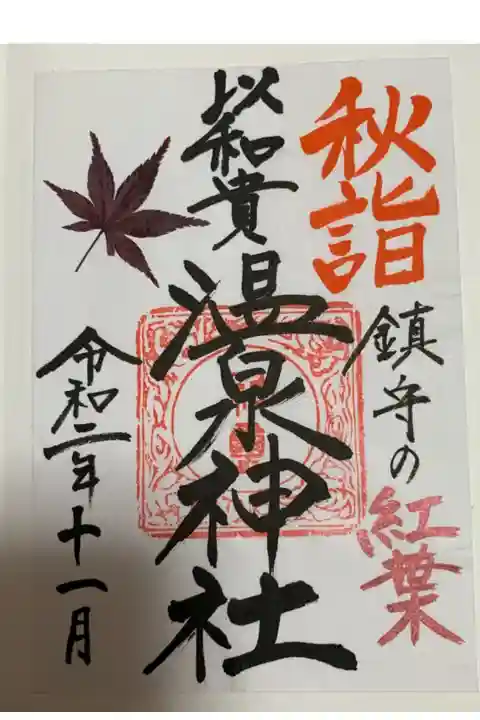 秋詣
鎮守の紅葉
以和貴
温泉神社
令和二年十一月